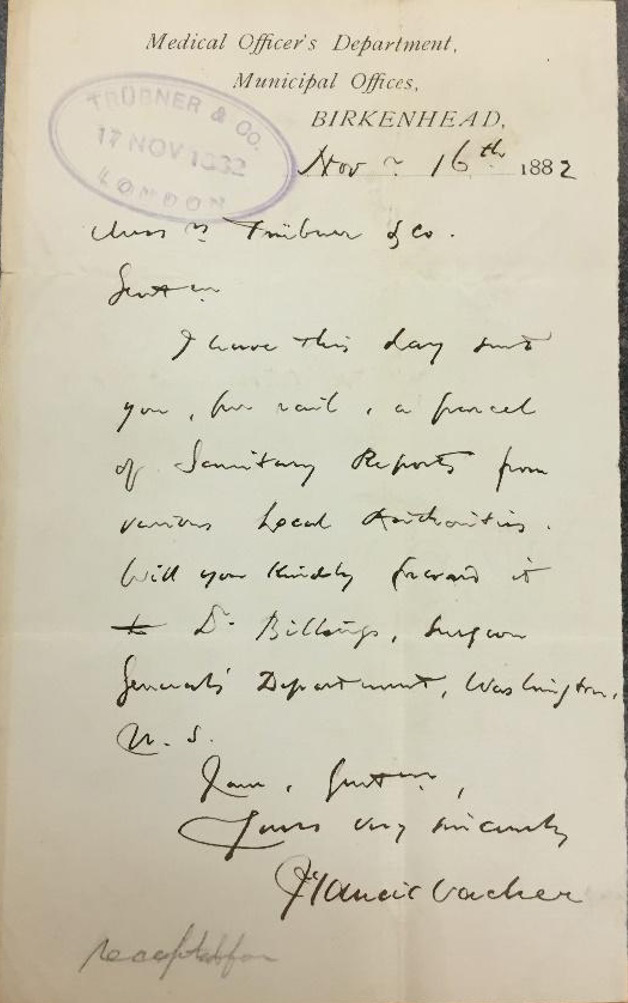 Medical Officer's Department,
Municipal Offices,
BIRKENHEAD,
TRÜBNER & CO.
17 NOV 1882
LONDON
Nov r 16th 1882
Mess rs Trübner & Co.
Gentn
I have this day sent
you, per rail, a parcel
of Sanitary Reports from
various Local Authorities.
Will you kindly forward it
to Dr. Billings, Surgeon
General's Department, Washington,
U. S.
I am, Gentn,
Yours very sincerely
Francis Vacher